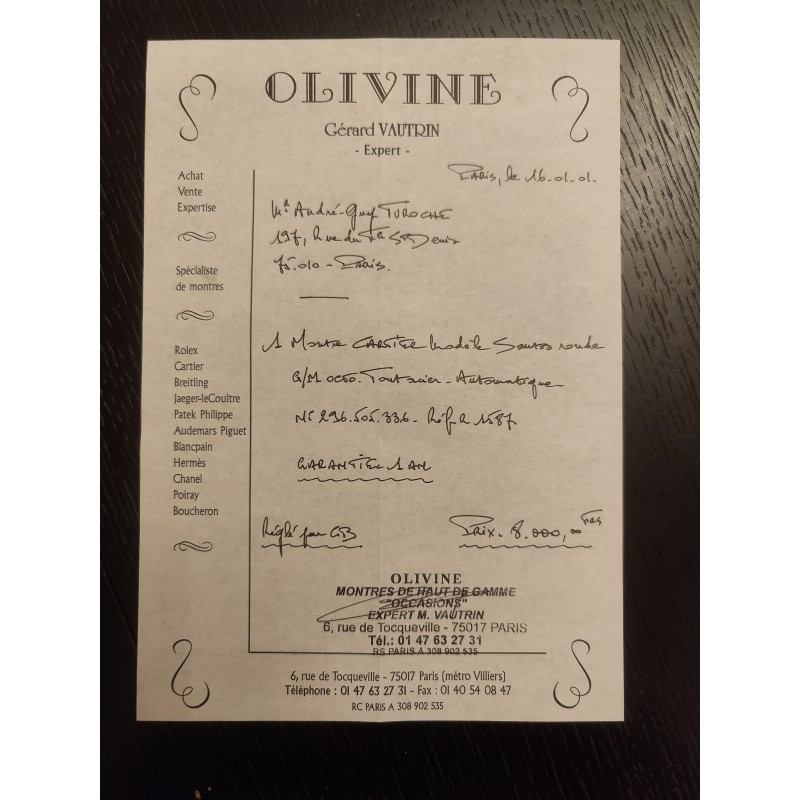 OLIVINE
Gérard VAUTRIN
- Expert -
Achat
Vente
Expertise
Spécialiste
de montres
Rolex
Cartier
Breitling
Jaeger-leCoultre
Patek Philippe
Audemars Piguet
Blancpain
Hermès
Chanel
Poiray
Boucheron
Paris, le 16.01.01.
Mr André-Guy TUROCHE
197, Rue du Fg St Denis
75.010 - Paris.
1 Montre CARTIER Modèle Santos ronde
G/M octo. Tout acier - Automatique
N° 296.505.336 - Réf
GARANTIE 1 AN
Réglé par CB
Prix. 8.000,00 Frs
OLIVINE
MONTRES DE HAUT DE GAMME
"OCCASIONS"
EXPERT M. VAUTRIN
6, rue de Tocqueville - 75017 PARIS
Tél.: 01 47 63 27 31
RS PARIS A 308 902 535
6, rue de Tocqueville - 75017 Paris (métro Villiers)
Téléphone : 01 47 63 27 31 - Fax : 01 40 54 08 47
RC PARIS A 308 902 535